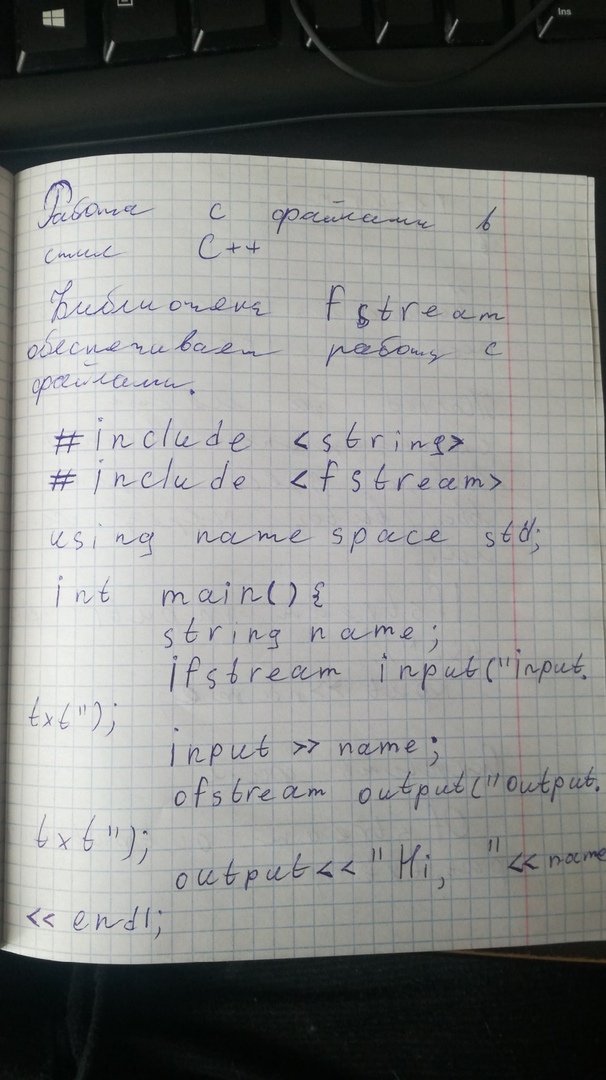 Работа с файлами в
стиле C++
Библиотека fstream
обеспечивает работу с
файлами.
#include <string>
#include <fstream>
using namespace std;
int main(){
string name;
ifstream input("input.
txt");
input >> name;
ofstream output("output.
txt");
output<<"Hi, "<< name
<< endl;
Ins